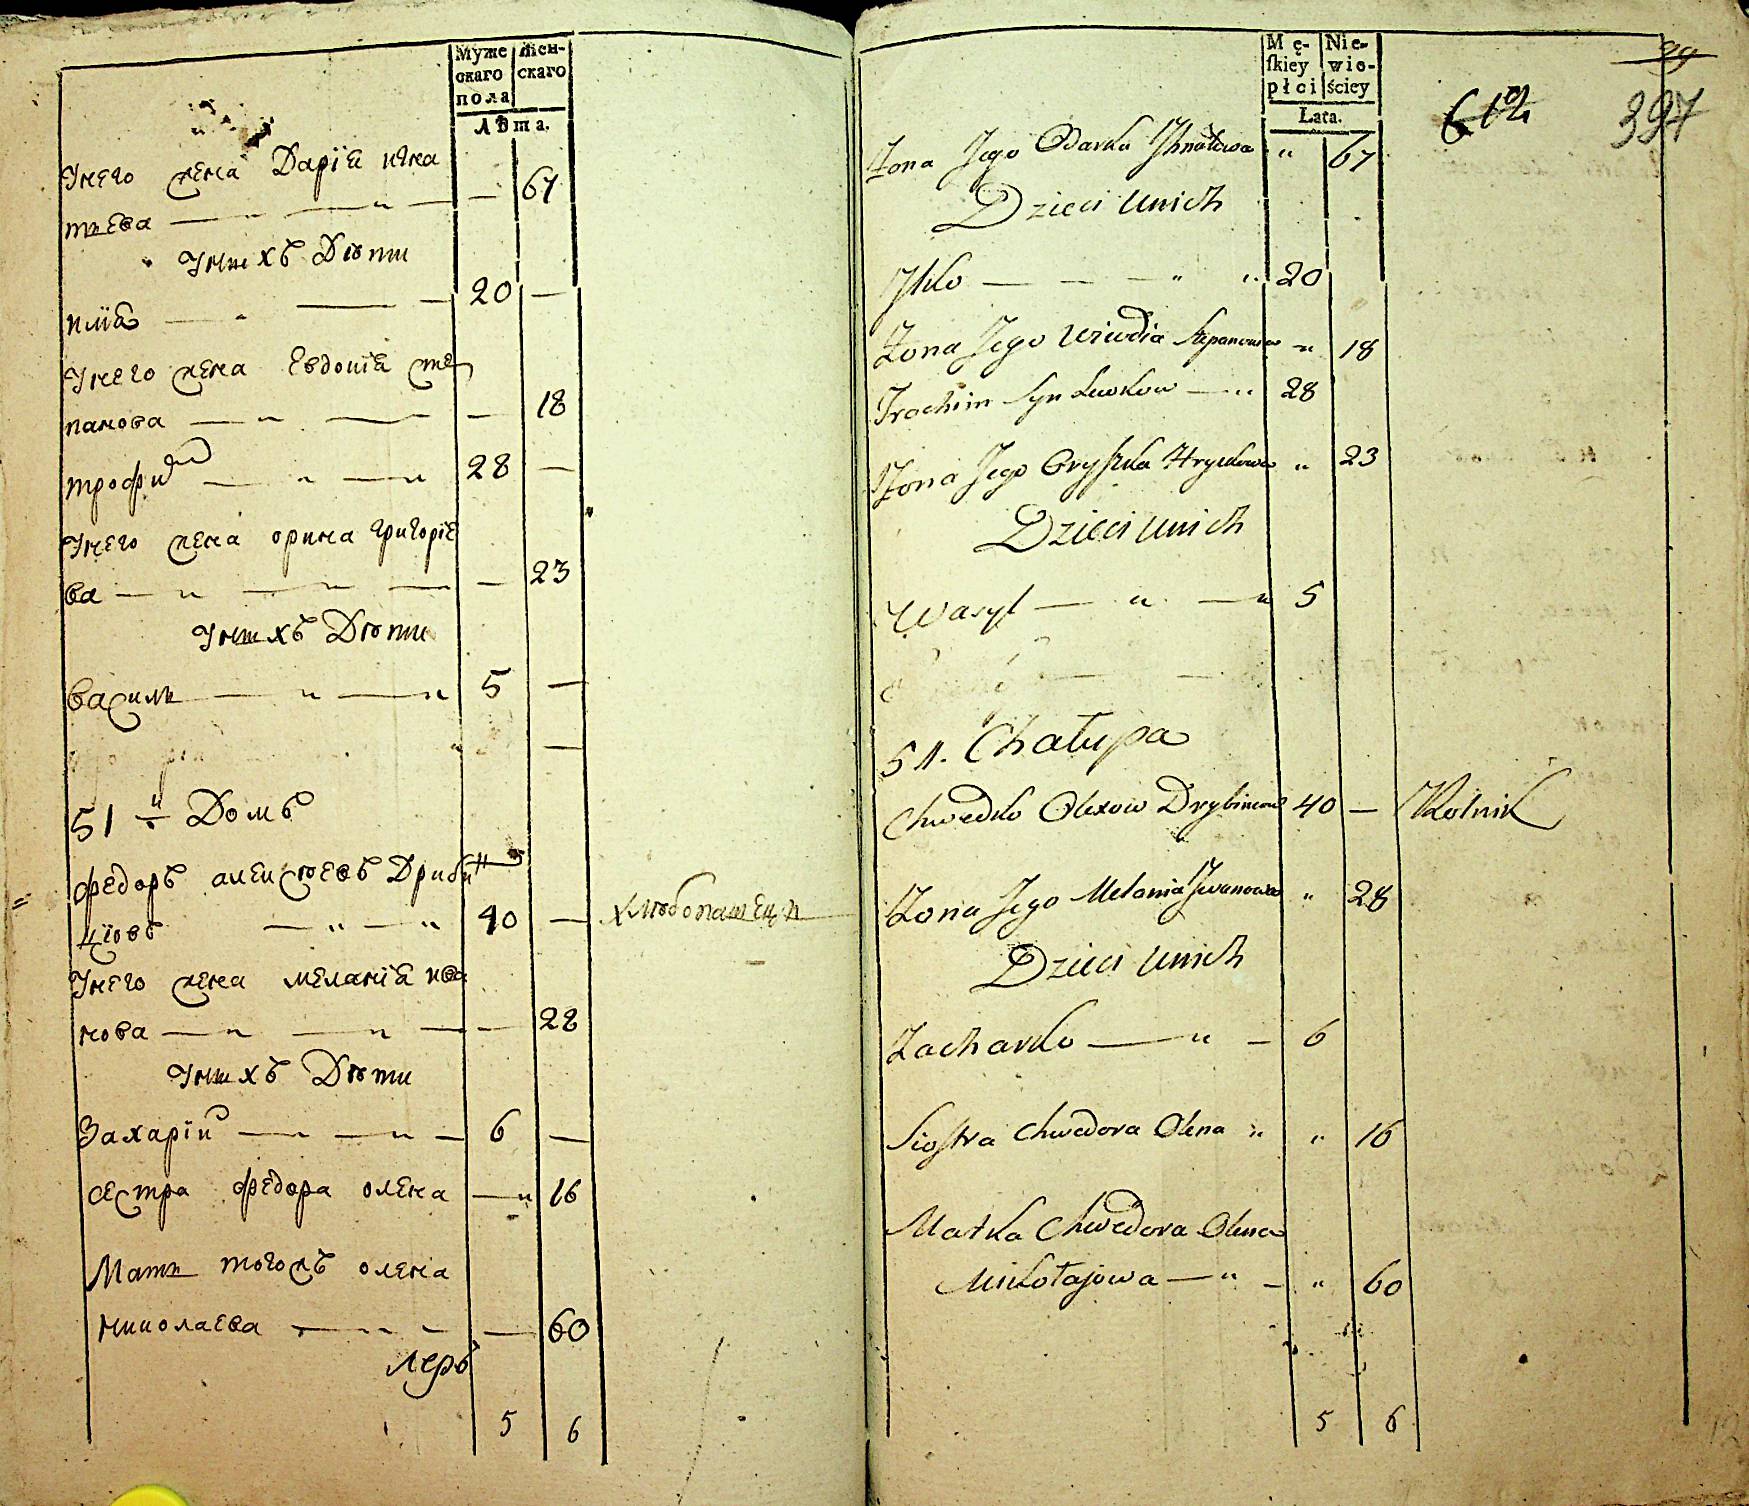 Муже
скаго
пола
Жен-
скаго
Лѣта.
Унего жена Дарїя игна
тьева — „ — 67
Унихъ Дѣти
илїя — „ — 20 —
Унего жена Евдокїя сте
панова — „ — — 18
трофим — „ — „ 28 —
Унего жена орина григорїе
ва — „ — „ — — 23
Унихъ Дѣти
василь — „ — „ 5 —
51 й Домъ
федоръ алексѣевъ Дрибин
цювъ — „ — „ 40 — хлѣбопашецъ
Унего жена меланїя ива
нова — „ — „ — — 28
Унихъ Дѣти
Захарїй — „ — „ — 6 —
сестра федора олена — „ 16
Мать тогожъ олена
николаева — „ — — 60
5 6
Mę-
skiey
płci
Nie-
wie-
ściey
Lata.
99
397
Żona Jego Odarka Jhnatowa „ 67
Dzieci unich
Jlko — „ „ 20
Żona Jego Uwdia Stepanowa „ 18
Trochim Syn Luckow — „ 28
Żona Jego Oryszka Hryckowa „ 23
Dzieci unich
Wasyl — „ — „ 5
51. Chałupa
Chwedko Olexow Drybincow 40 — Rolnik
Żona Jego Melania Jwanowa „ 28
Dzieci unich
Zacharko — „ — 6
Siostra Chwedora Olena „ „ 16
Matka Chwedora Olena
Mikołajowa — „ — „ 60
5 6